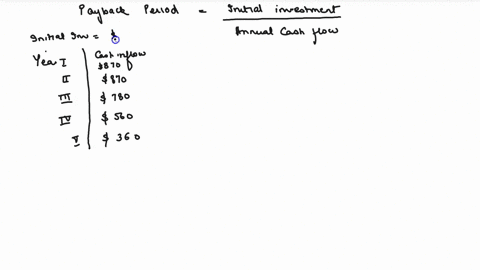 Payback Period = Initial investment
Annual Cash flow
Initial Inv = $
Year Cash inflow
I $870
II $870
III $780
IV $560
V $360